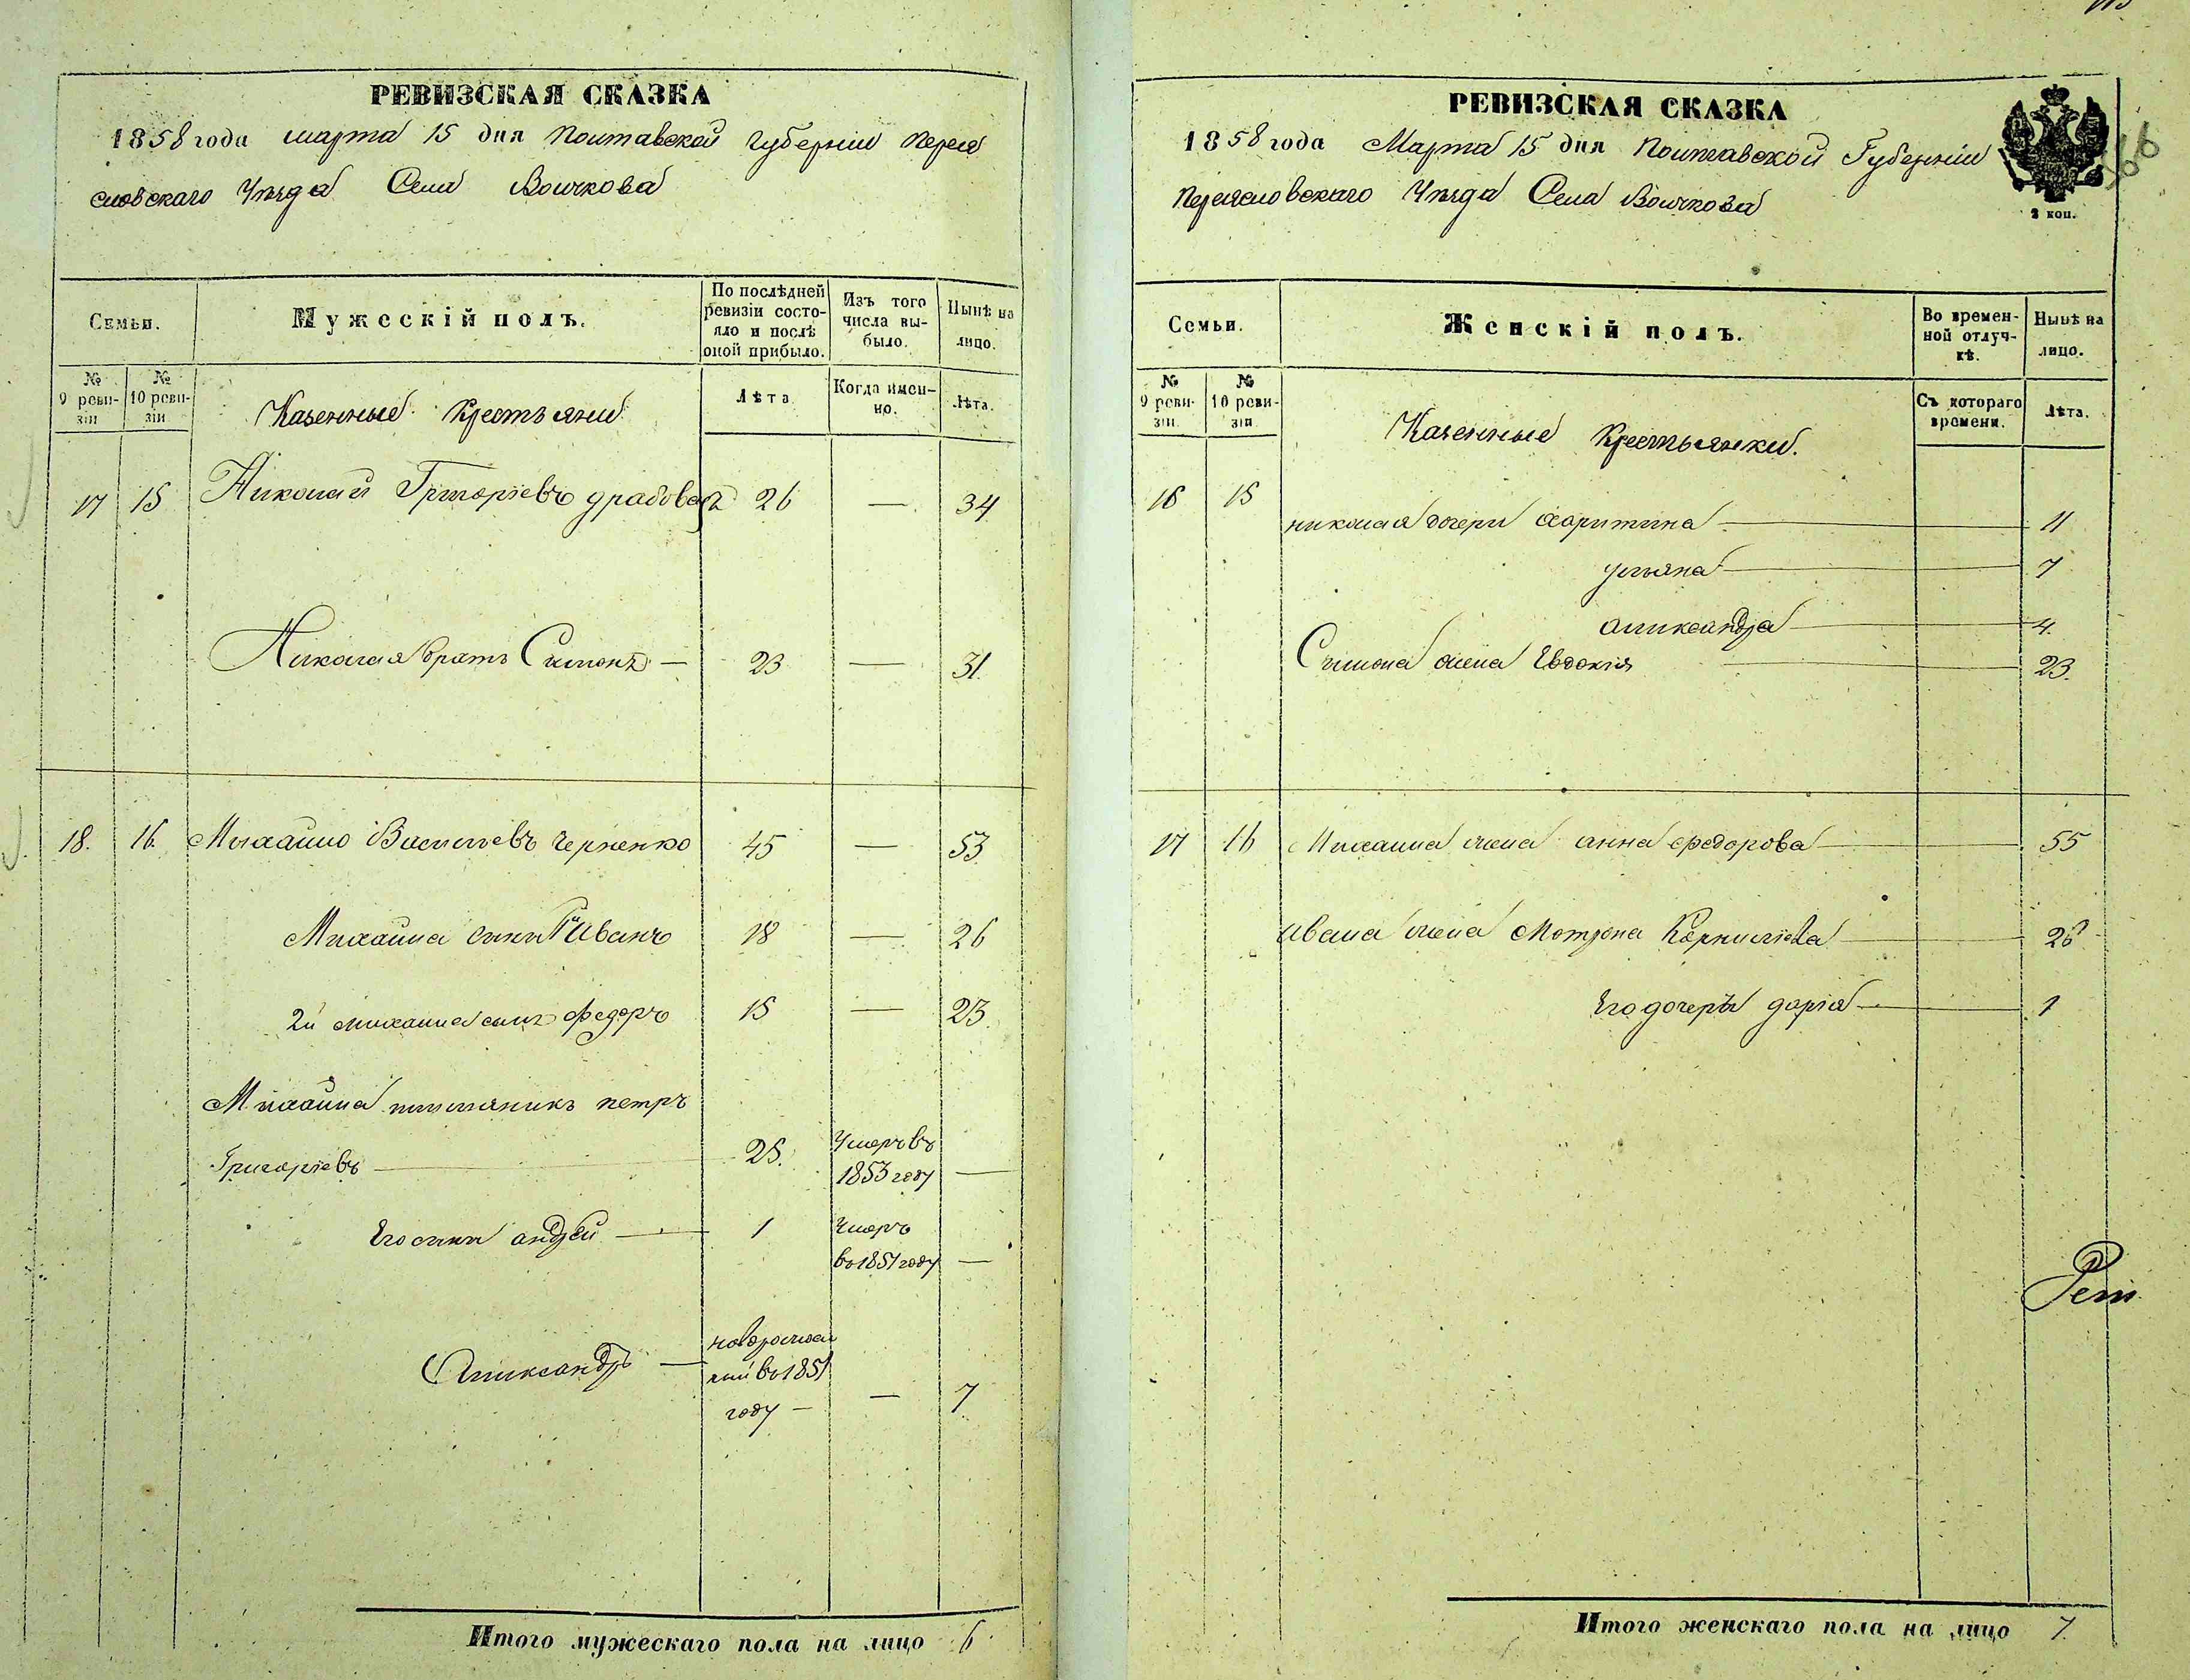 РЕВИЗСКАЯ СКАЗКА
1858 года марта 15 дня Полтавской губернии Перея
словскаго Уезда Села Волчкова
Семьи.
Мужескій полъ.
По послѣдней ревизіи состояло и послѣ оной прибыло.
Изъ того числа выбыло.
Нынѣ на лицо.
№ 9 ревизіи
№ 10 ревизіи
Казенные Крестьяни
Лѣта
Когда именно.
Лѣта.
17 15 Николай Григоріевъ Драбовец 26 — 34
Николая братъ Симонъ — 23 — 31.
18. 16. Михайло Васильевъ Черненко 45 — 53
Михайла сыны 1й Иванъ 18 — 26
2й михайла сынъ Федоръ 15 — 23.
Михайла племяникъ петръ
Григоріевъ 25. Умеръ въ 1853 году —
Его сыны андрей — 1 Умеръ
во 1851 году —
Александръ — новорожден
ный во 1851
году — — 7
Итого мужескаго пола на лицо 6
РЕВИЗСКАЯ СКАЗКА
1858 года Марта 15 дня Полтавской Губерніи
Переясловскаго Уезда Села Волчкова
2 коп.
Семьи.
Женскій полъ.
Во временной отлучкѣ.
Нынѣ на лицо.
№ 9 ревизіи.
№ 10 ревизіи.
Казенные Крестьянки.
Съ котораго времени.
Лѣта.
16 15
николая дочери Харитина — 11
ульяна — 7
александра — 4.
Симона жена Евдокія — 23.
17 16 Михайла жена анна федорова — 55
Ивана жена Мотрона Корнилiева — 26
Его дочеры дарія — 1
Итого женскаго пола на лицо 7.